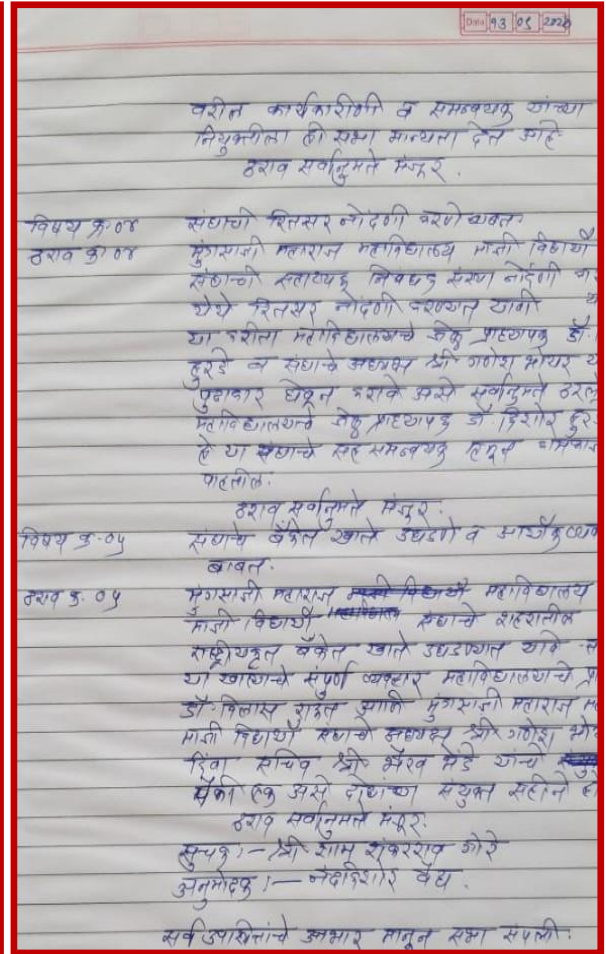 Date 13 05 2020
वरील कार्यकारीणी व समन्वयक यांच्या
नियुक्तीला ही सभा मान्यता देत आहे
ठराव सर्वानुमते मंजूर.
विषय क्र-०४ संघाची रितसर नोंदणी करणे बाबत.
ठराव क्र ०४ मुंगसाजी महाराज महाविद्यालय माजी विद्यार्थी
संघाची सहाय्यक निबंधक संस्था नोंदणी
येथे रितसर नोंदणी करण्यात यावी
या करीता महाविद्यालयाचे प्राध्यापक डॉ.
दुरडे व संघाचे अध्यक्ष श्री गणेश भोयर
पुढाकार घेवून करावे असे सर्वानुमते ठरले
महाविद्यालयाचे प्राध्यापक डॉ. किशोर
हे या संघाचे सह समन्वयक म्हणून
पाहतील.
ठराव सर्वानुमते मंजूर.
विषय क्र-०५ संघाचे बँकेत खाते उघडणे व आर्थीक
बाबत.
ठराव क्र-०५ मुंगसाजी महाराज महाविद्यालय
माजी विद्यार्थी संघाचे शहरातील
राष्ट्रीयकृत बँकेत खाते उघडण्यात यावे
या खात्याचे संपुर्ण व्यवहार महाविद्यालयाचे
डॉ. विलास राऊत आणि मुंगसाजी महाराज
माजी विद्यार्थी संघाचे अध्यक्ष श्री गणेश
किंवा सचिव श्री भैरव भेंडे यांचे
पैकी एक असे दोघांच्या संयुक्त सहीने
ठराव सर्वानुमते मंजूर.
सुचक :- श्री शाम शंकरराव गोरे
अनुमोदक :- नंदकिशोर वैद्य.
सर्व उपस्थितांचे आभार मानून सभा संपली.